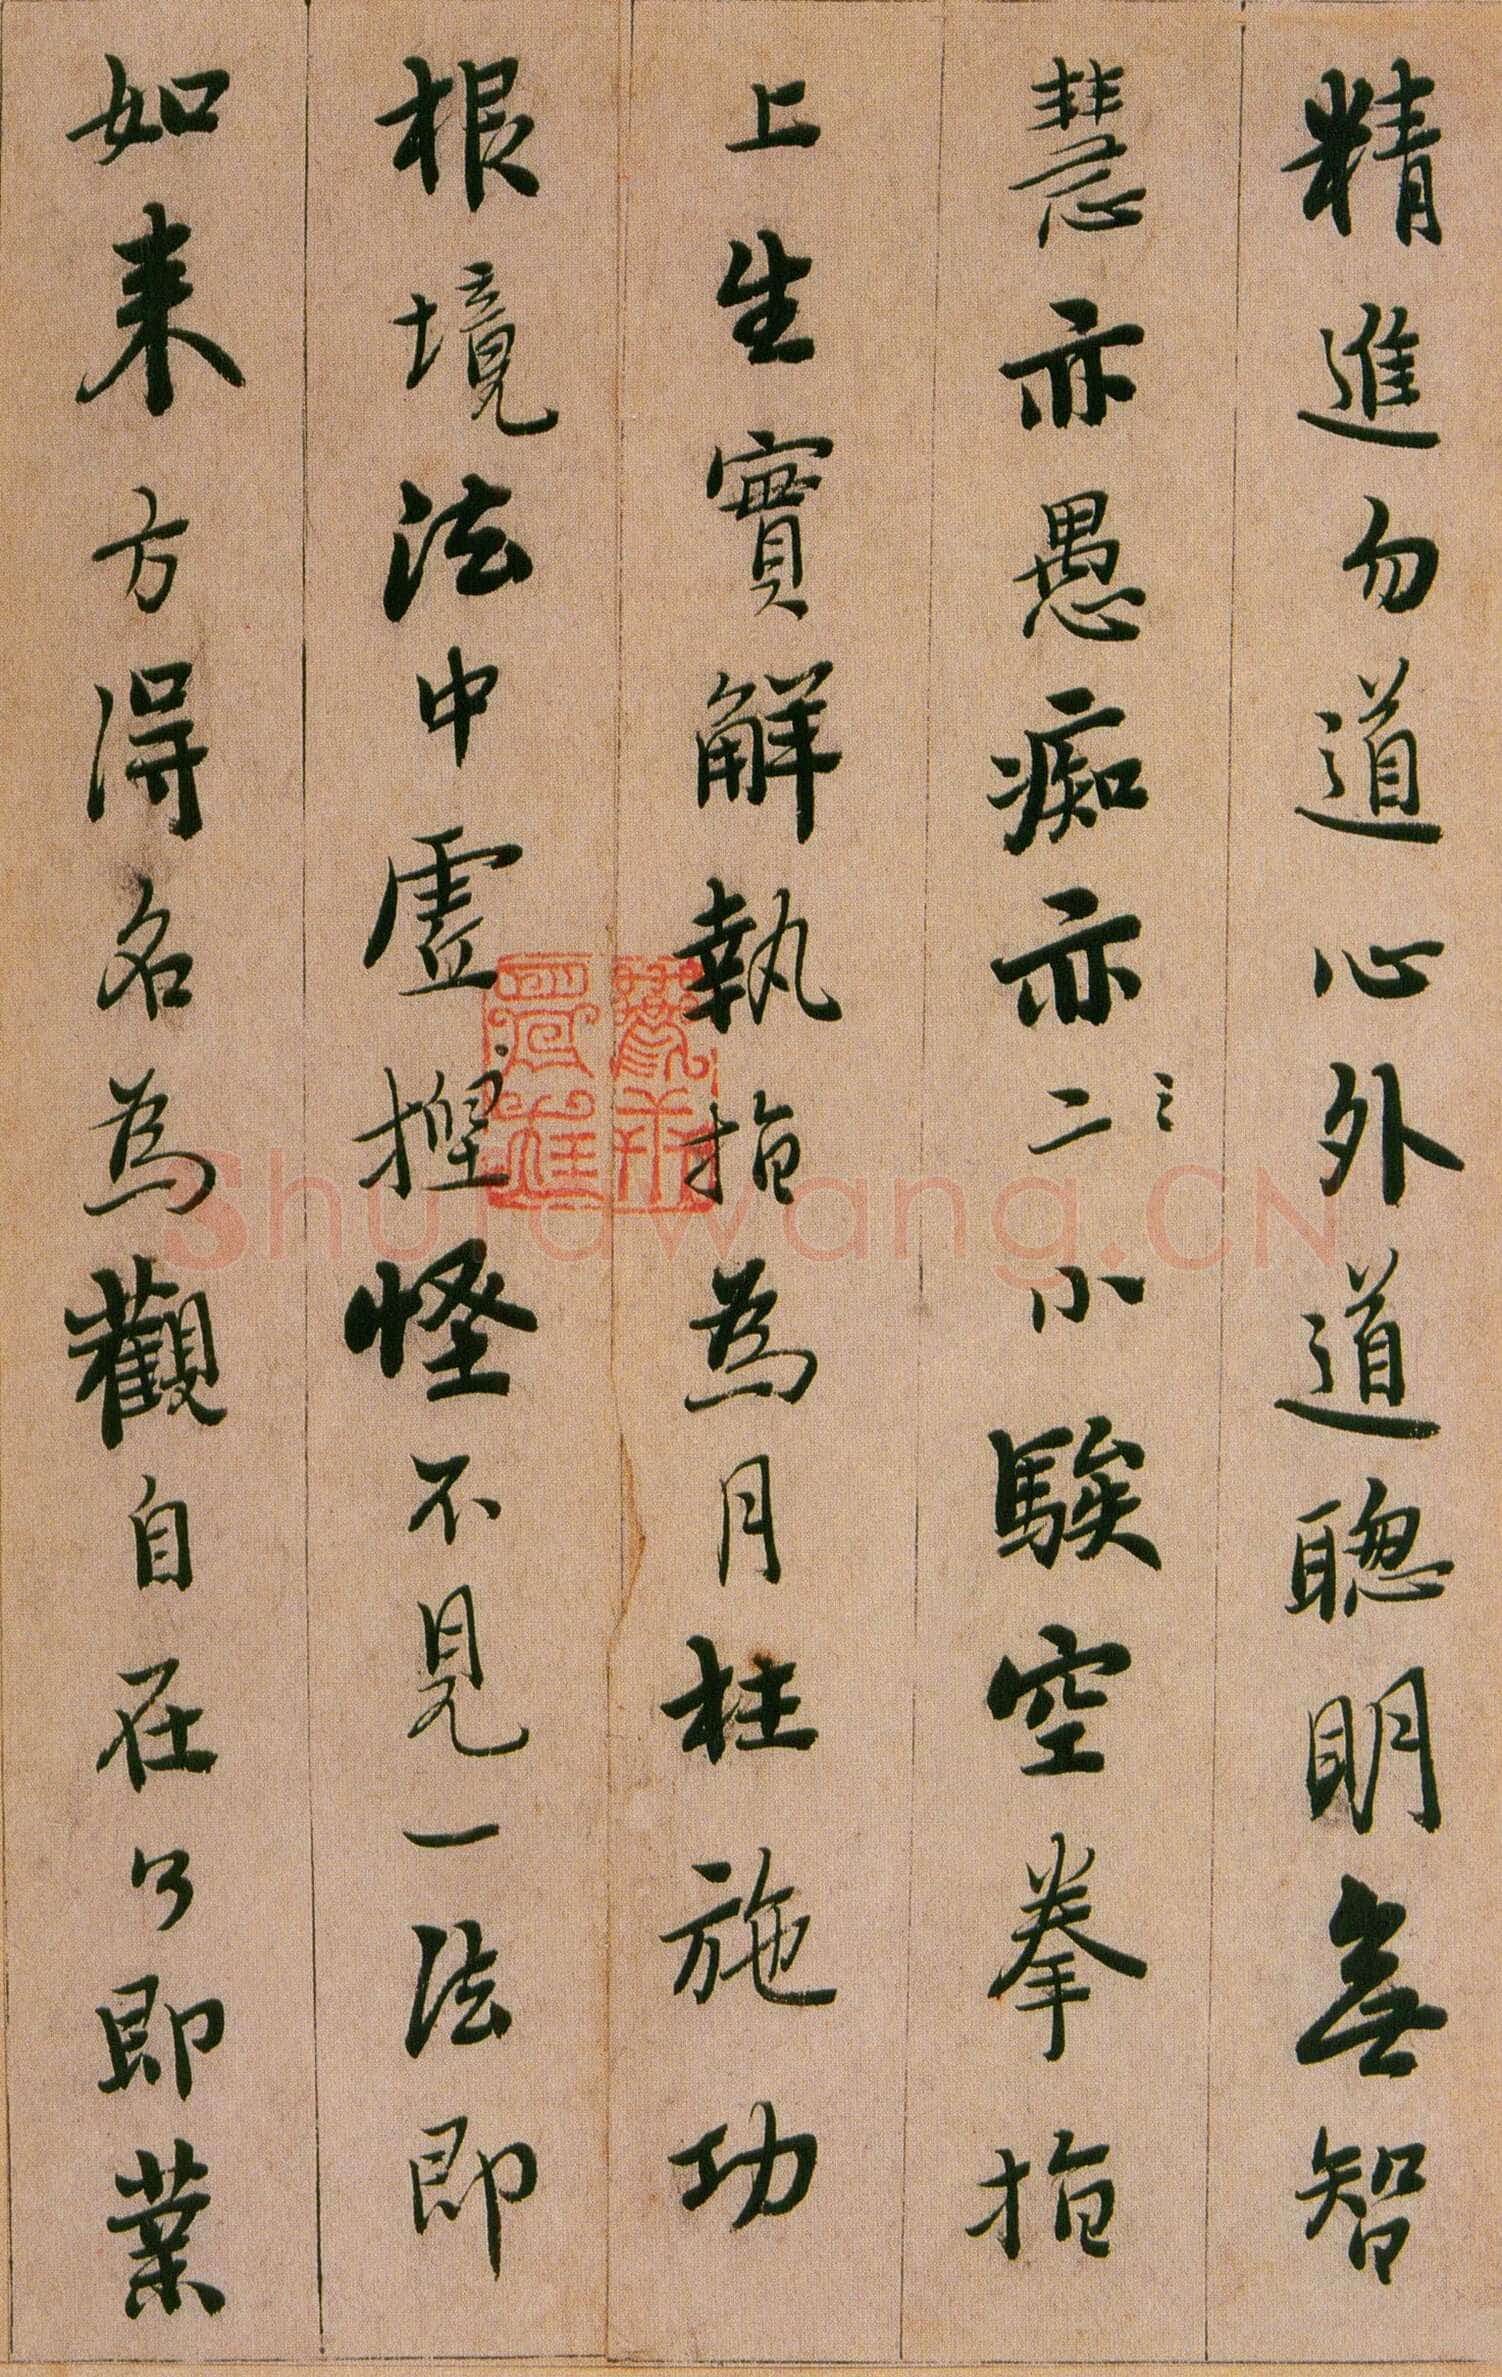 精進勿道心外道聰明無智
慧亦愚痴亦二小騃空拳指
上生實解執指為月枉施功
根境法中虛捏怪不見一法即
如来方得名為觀自在了即業
Shufawang.CN